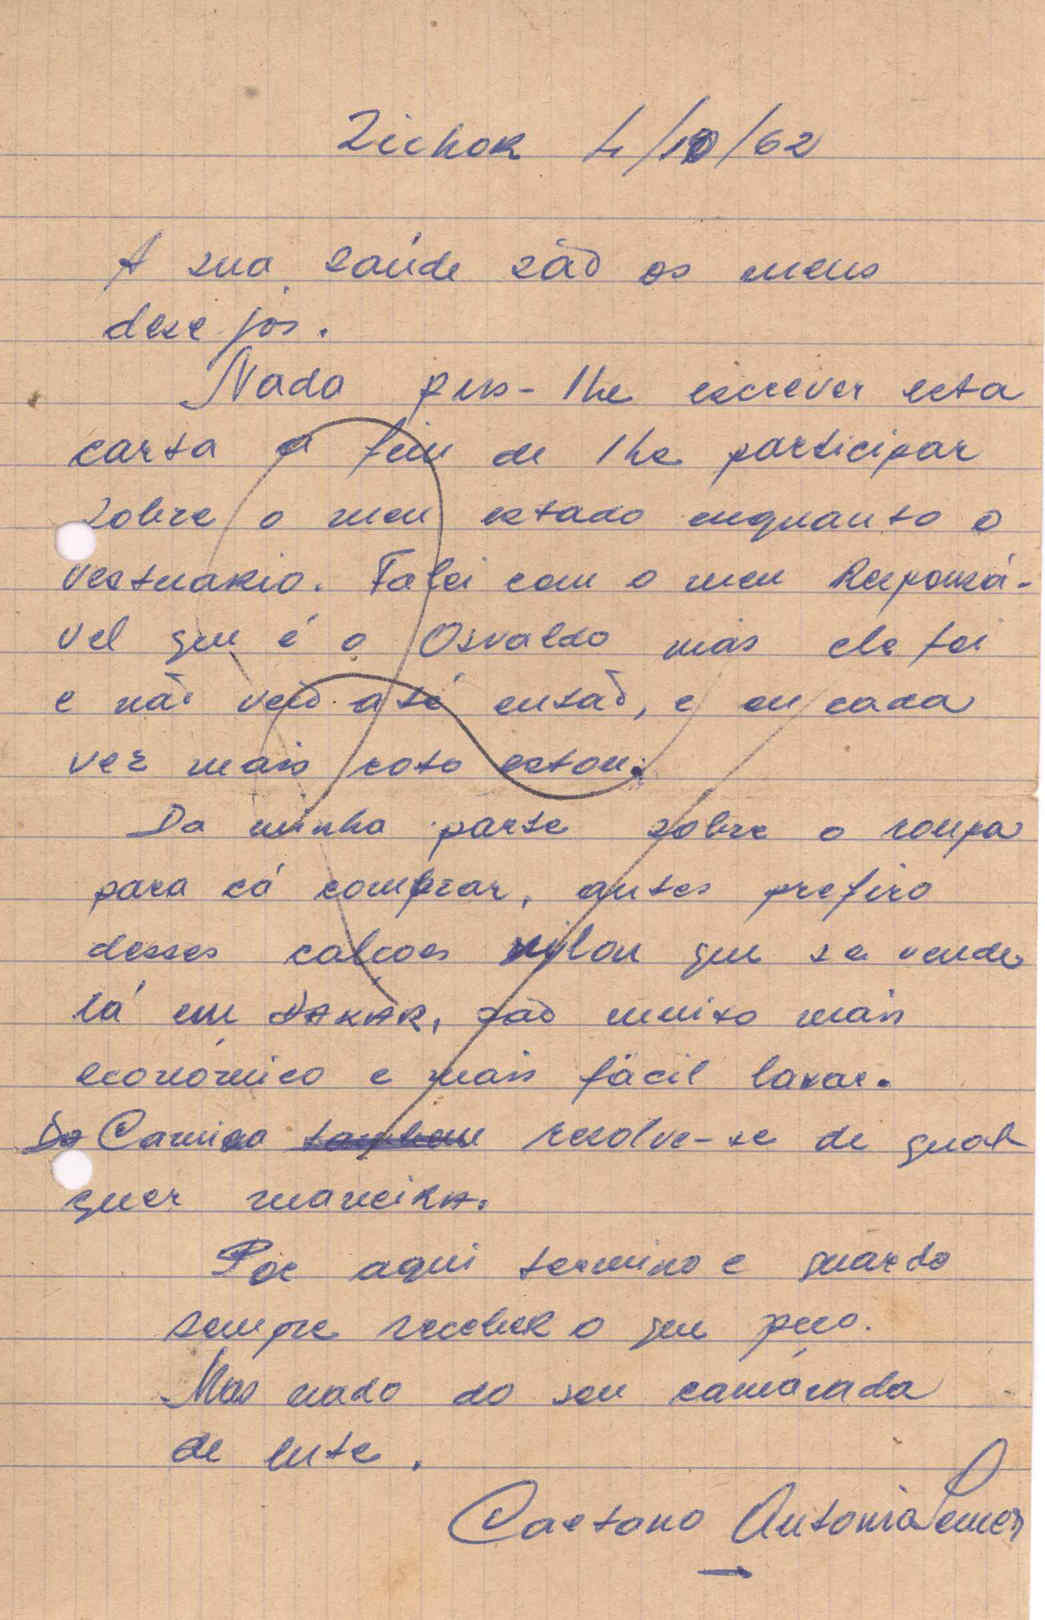 Zichor 4/10/62
A sua saúde são os meus
desejos.
Nada pus-lhe escrever esta
carta a fim de lhe participar
sobre o meu estado enquanto o
vestuario. Falei com o meu Responsá-
vel que é o Osvaldo mas ele foi
e não veio até então, e eu cada
vez mais roto estou.
Da minha parte sobre o roupa
para cá comprar, antes prefiro
desses calçoes nilon que se vende
lá em DAKAR, são muito mais
económico e mais fácil lavar.
Da Camisa resolve-se de qual
quer maneira.
Por aqui termino e guardo
sempre receber o que peço.
Mas nado do seu camárada
de luta.
Caetano Antonio Semes